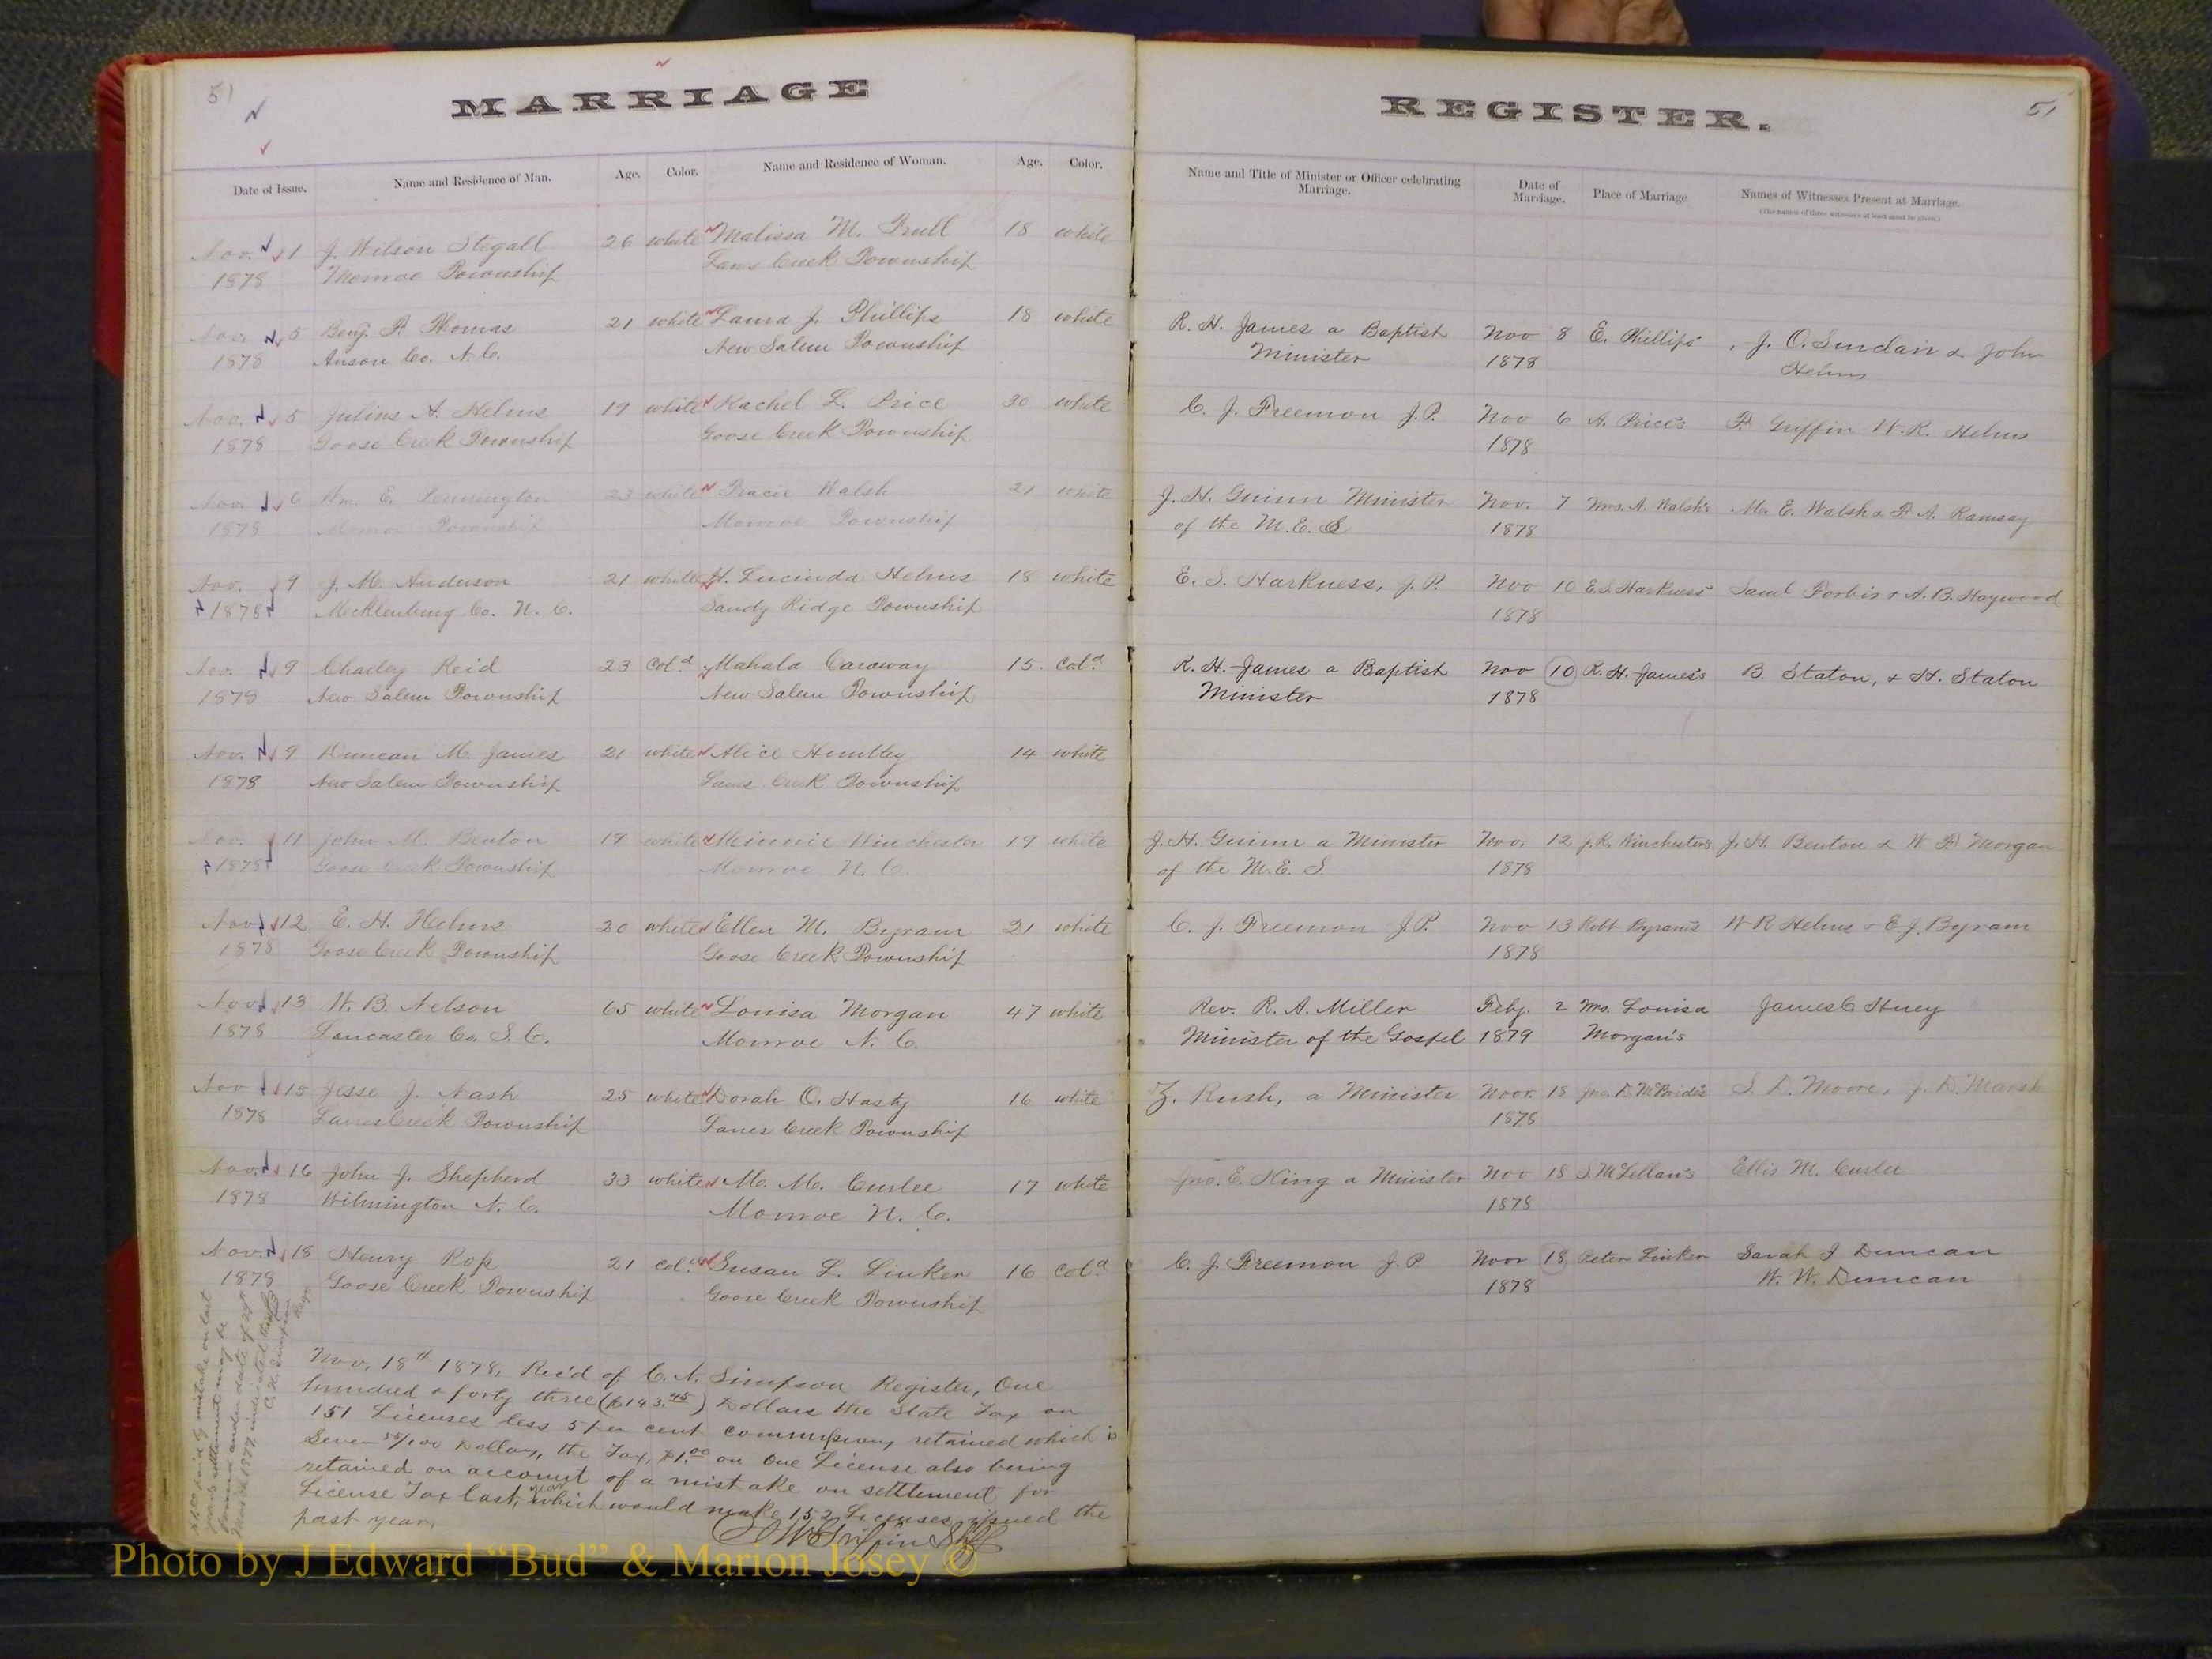 51
MARRIAGE
Date of Issue. Name and Residence of Man. Age. Color. Name and Residence of Woman. Age. Color.
Nov. 1 J. Wilson Stegall 26 white Malissa M. Trull 18 white
1878 Monroe Township Lanes Creek Township
Nov. 5 Benj. F. Thomas 21 white Laura J. Phillips 18 white
1878 Anson Co. N. C. New Salem Township
Nov. 5 Julius A. Helms 19 white Rachel L. Price 30 white
1878 Goose Creek Township Goose Creek Township
Nov. 6 Wm. E. 23 white Walsh 21 white
1878 Monroe Township Monroe Township
Nov. 9 J. M. Anderson 21 white H. Lucinda Helms 18 white
1878 Mecklenburg Co. N. C. Sandy Ridge Township
Nov. 9 Charley Reid 23 Col.d Mahala Caraway 15. Col.d
1878 New Salem Township New Salem Township
Nov. 9 Duncan M. James 21 white Alice Huntley 14 white
1878 New Salem Township Lanes Creek Township
Nov. 11 John M. Benton 19 white Minnie Winchester 19 white
1878 Goose Creek Township Monroe N. C.
Nov. 12 E. H. Helms 20 white Ellen M. Byram 21 white
1878 Goose Creek Township Goose Creek Township
Nov. 13 W. B. Nelson 65 white Louisa Morgan 47 white
1878 Lancaster Co. S. C. Monroe N. C.
Nov 15 Jesse J. Nash 25 white Dorah O. Hasty 16 white
1878 Lanes Creek Township Lanes Creek Township
Nov. 16 John J. Shepherd 33 white M. M. Curlee 17 white
1878 Wilmington N. C. Monroe N. C.
Nov. 18 Henry 21 Col.d Susan L. Linker 16 Col.d
1878 Goose Creek Township Goose Creek Township
Nov. 18th 1878, Rec'd of C. N. Simpson Register, One
hundred & forty three ($143.45) Dollars the State Tax on
151 Licenses less 5 per cent commissions, retained which is
Seven 55/100 Dollars, the Tax, $1.00 on One License also being
retained on account of a mistake on settlement for
License Tax last year, which would make 152 Licenses issued the
past year.
Griffin Shff
REGISTER.
51
Name and Title of Minister or Officer celebrating Marriage. Date of Marriage. Place of Marriage Names of Witnesses Present at Marriage.
(The names of three witnesses at least must be given.)
R. H. James a Baptist Nov 8 E. Phillips' J. O. & John
Minister 1878 Helms
C. J. Freemon J.P. Nov 6 A. Price's F. Griffin W. R. Helms
1878
J. H. Guinn Minister Nov. 7 Mrs. A. Walsh's M. E. Walsh & F. A. Ramsay
of the M. E. S 1878
E. S. Harkness, J. P. Nov 10 E. S. Harkness' Saml & A. B. Haywood
1878
R. H. James a Baptist Nov 10 R. H. James's B. Staton, & H. Staton
Minister 1878
J. H. Guinn a Minister Nov. 12 J. R. Winchester's J. H. Benton & W. F. Morgan
of the M. E. S. 1878
C. J. Freemon J.P. Nov 13 Robt Byram's W R Helms & E J. Byram
1878
Rev. R. A. Miller Feby. 2 Mrs. Louisa James C Huey
Minister of the Gospel 1879 Morgan's
Z. Rush, a Minister Nov. 18 Jno. D. McBride's S. D. Moore, J. D. Marsh
1878
Jno. E. King a Minister Nov 18 S. McLellan's Ellis M. Curlee
1878
C. J. Freemon J. P Nov 18 Peter Linker Sarah J Duncan
1878 W. W. Duncan
Photo by J Edward “Bud” & Marion Josey ©